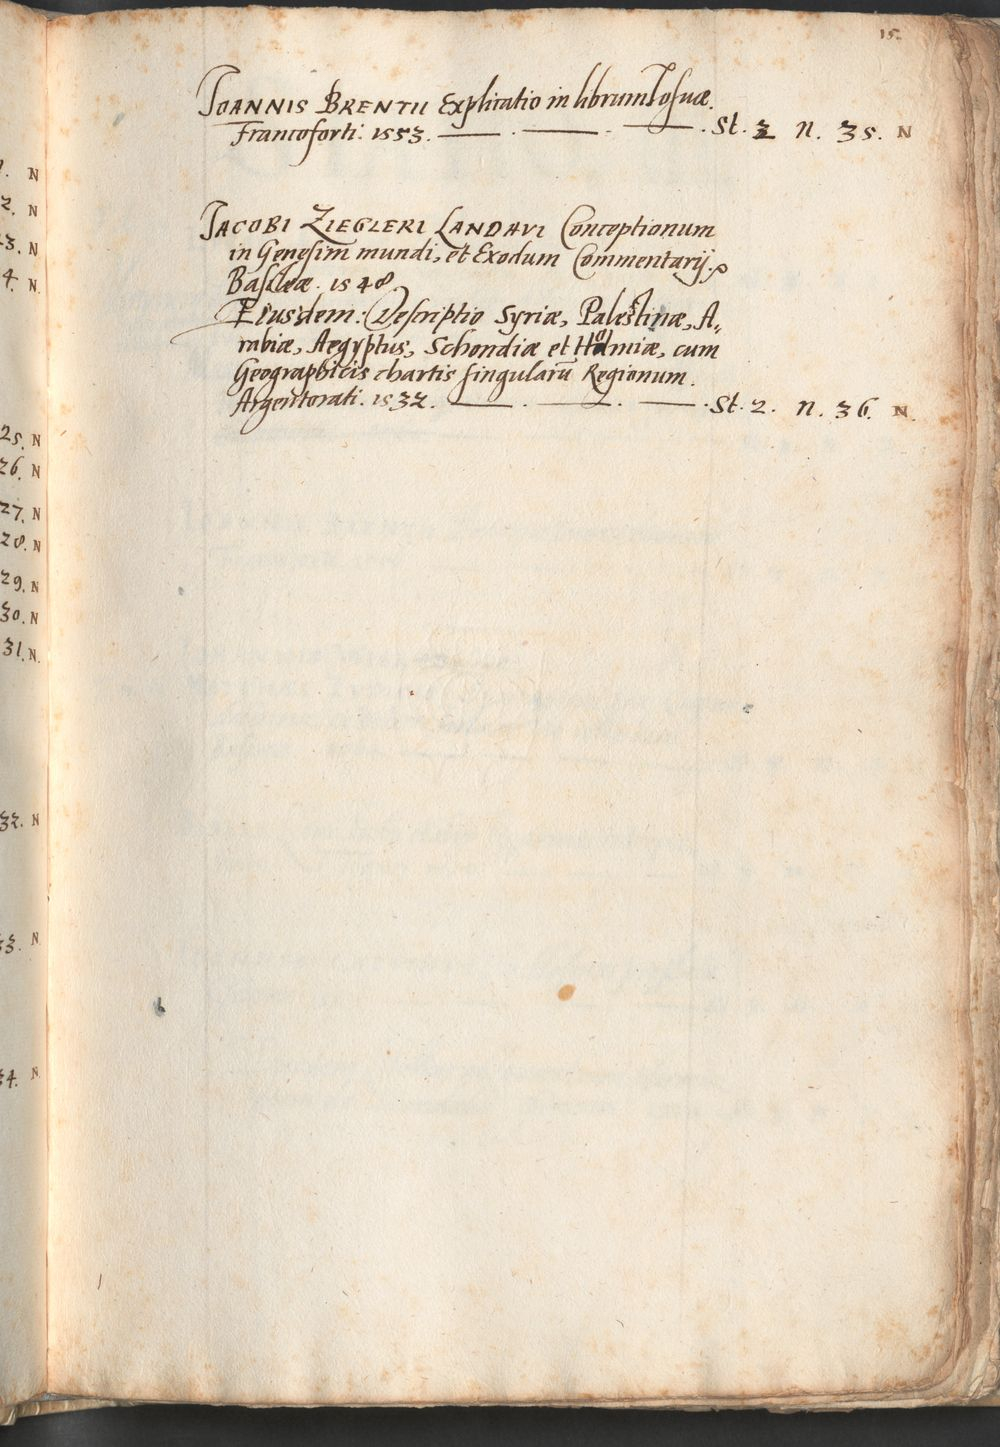 15.
IOANNIS BRENTII Explicatio in librum Iosuæ.
Francoforti. 1553. St. 2 N. 35. N
IACOBI ZIEGLERI LANDAVI Conceptionum
in Genesim mundi, et Exodum Commentarij.
Basileæ. 1548.
Eiusdem: Descriptio Syriæ, Palestinæ, A„
rabiæ, Aegyptus, Schondiæ et Holmiæ, cum
Geographicis chartis singularū Regionum.
Argentorati. 1532. St. 2. N. 36. N.
N
2. N
3. N
4. N.
25. N
26. N
27. N
28. N
29. N
30. N
31. N.
32. N
33. N
34. N